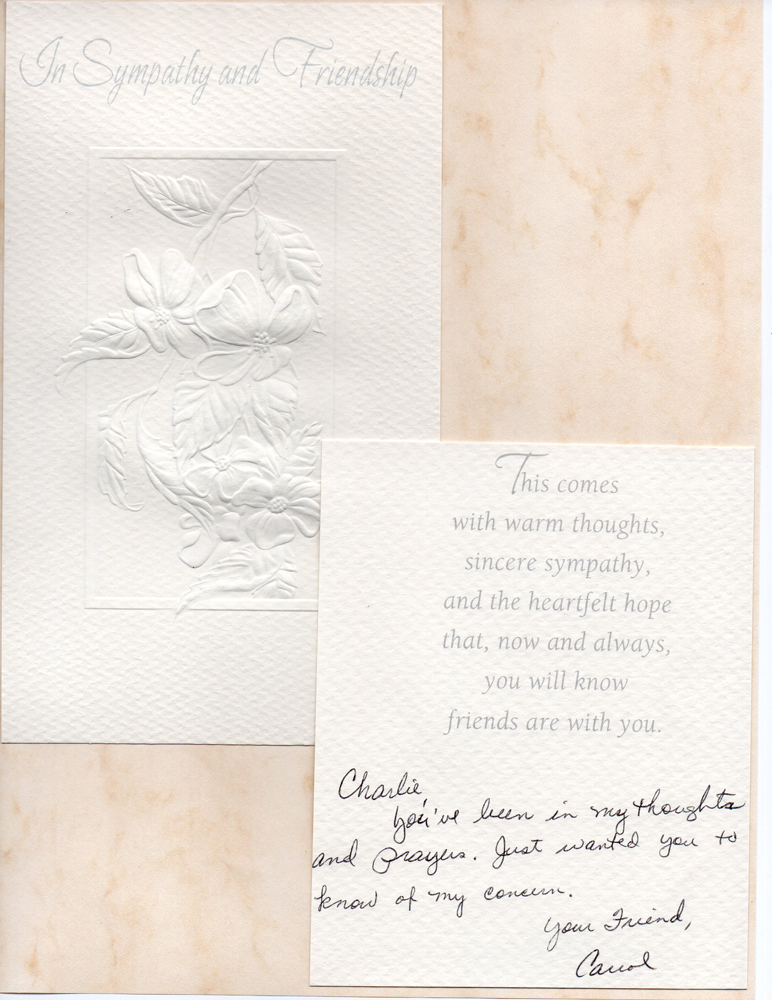 In Sympathy and Friendship
This comes
with warm thoughts,
sincere sympathy,
and the heartfelt hope
that, now and always,
you will know
friends are with you.
Charlie,
You've been in my thoughts
and prayers. Just wanted you to
know of my concern.
Your Friend,
Carrol